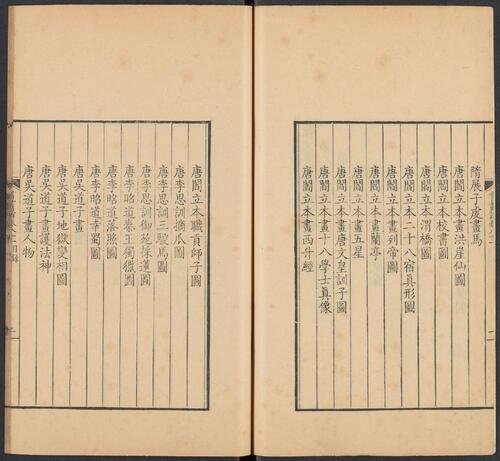 隋展子虔畫馬
唐閻立本畫洪崖仙圖
唐閻立本校書圖
唐閻立本渭橋圖
唐閻立本二十八宿真形圖
唐閻立本畫列帝圖
唐閻立本畫蘭亭
唐閻立本畫五星
唐閻立本畫唐文皇訓子圖
唐閻立本畫十八學士真像
唐閻立本畫西升經
唐閻立本職貢師子圖
唐李思訓摘瓜圖
唐李思訓三駿馬圖
唐李思訓御苑採蓮圖
唐李昭道秦王獨獵圖
唐李昭道落照圖
唐李昭道幸蜀圖
唐吳道子畫
唐吳道子地獄變相圖
唐吳道子畫護法神
唐吳道子畫人物